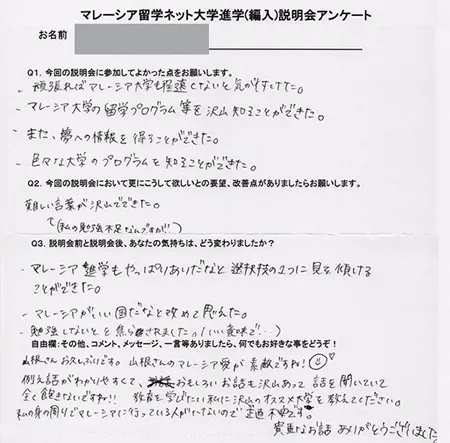 マレーシア留学ネット大学進学(編入)説明会アンケート
お名前
Q1. 今回の説明会に参加してよかった点をお願いします。
- 頑張ればマレーシア大学も
- マレーシア大学の留学プログラム等を沢山知ることができた。
- また、夢への情報を得ることができた。
- 色々な大学のプログラムを知ることができた。
Q2. 今回の説明会において更にこうして欲しいとの要望、改善点がありましたらお願いします。
難しい言葉が沢山でてきた。
(私の勉強不足なんですが!!)
Q3. 説明会前と説明会後、あなたの気持ちは、どう変わりましたか?
- マレーシア進学もやっぱりありだなと選択技の1つに見を傾ける
ことができた。
- マレーシアがいい国だなと改めて思えた。
- 勉強しないとと焦らされました!(いい意味で…)
自由欄:その他、コメント、メッセージ、一言等ありましたら、何でもお好きな事をどうぞ!
山根さんお久しぶりです。山根さんのマレーシア愛が素敵ですね!
例え話がわかりやすくて、おもしろいお話も沢山あって話を聞いていて
全く飽きないですね!! 教育を学びたい私に沢山のオススメ大学を教えてください。
私の身の周りでマレーシアに行っている人がいないので
貴重なお話ありがとうございました。